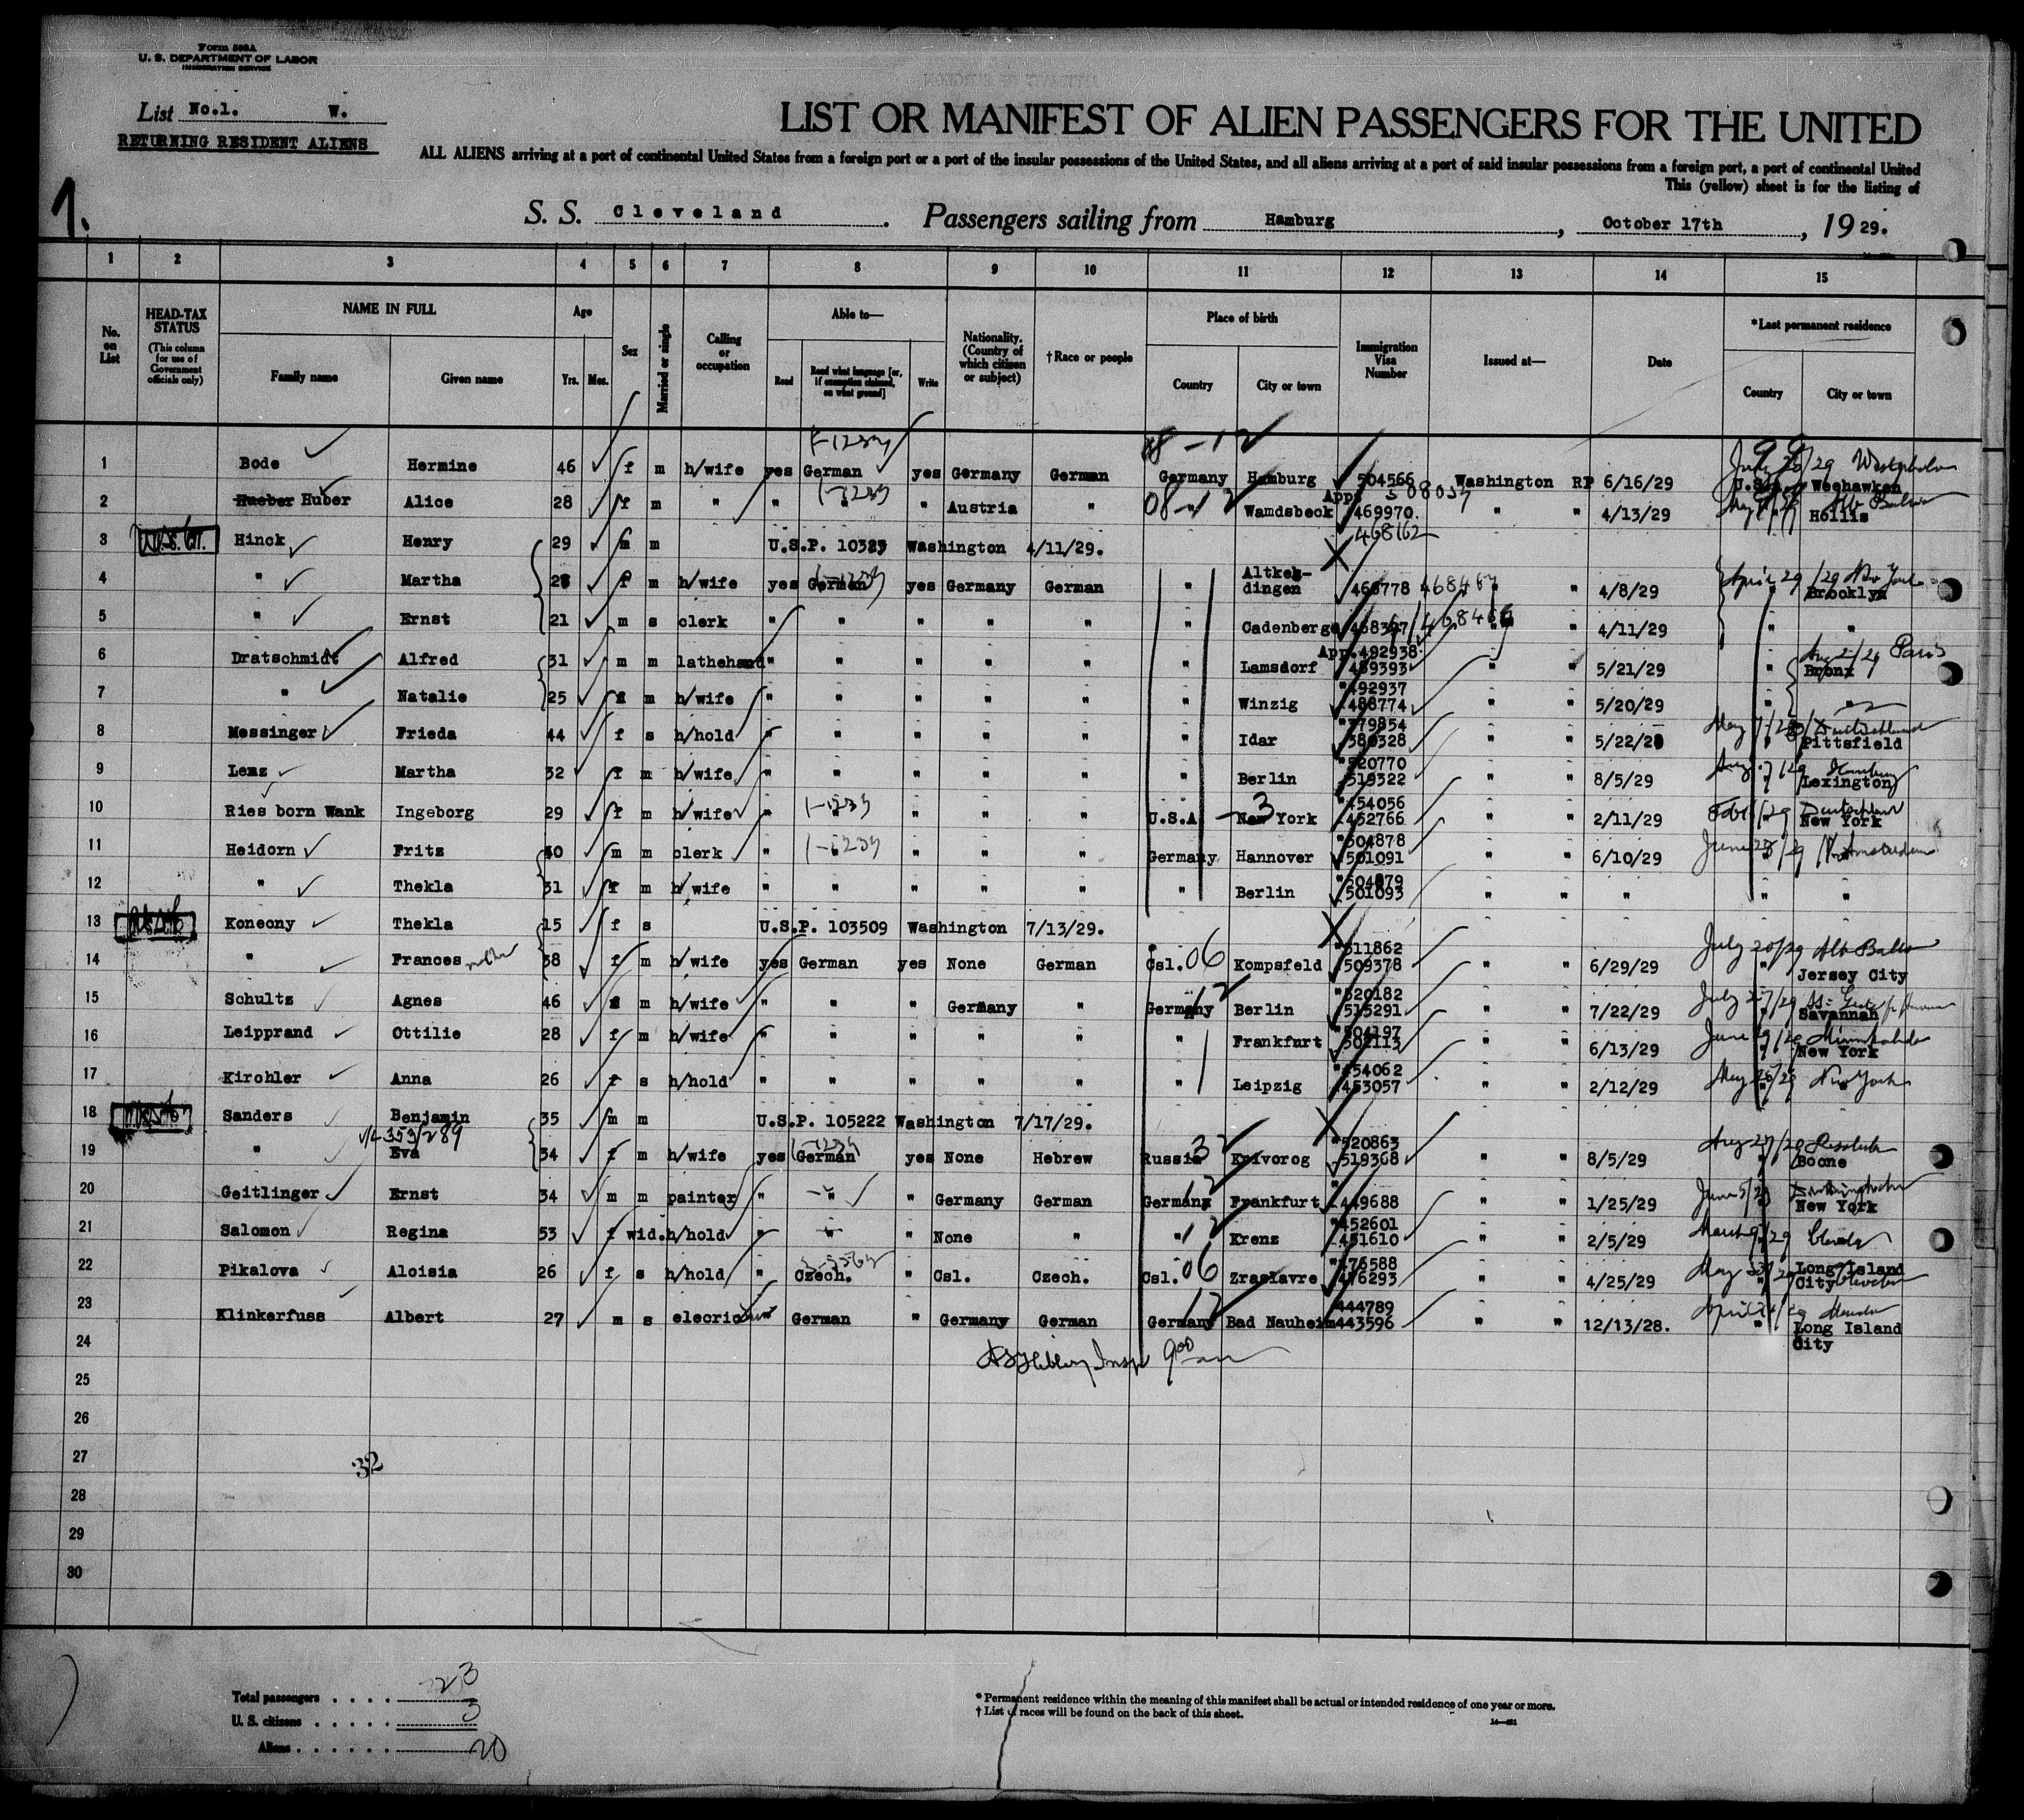 Form 500A
U. S. DEPARTMENT OF LABOR
IMMIGRATION SERVICE
List No.1. W.
RETURNING RESIDENT ALIENS
1.
LIST OR MANIFEST OF ALIEN PASSENGERS FOR THE UNITED
ALL ALIENS arriving at a port of continental United States from a foreign port or a port of the insular possessions of the United States, and all aliens arriving at a port of said insular possessions from a foreign port, a port of continental United
This (yellow) sheet is for the listing of
S. S. Cleveland. Passengers sailing from Hamburg, October 17th, 1929.
1 2 3 4 5 6 7 8 9 10 11 12 13 14 15
No. on List
HEAD-TAX STATUS (This column for use of Government officials only)
NAME IN FULL Family name Given name
Age Yrs. Mos.
Sex
Married or single
Calling or occupation
Able to— Read Read what language [or, if exemption claimed, on what ground] Write
Nationality. (Country of which citizen or subject)
†Race or people
Place of birth Country City or town
Immigration Visa Number
Issued at—
Date
*Last permanent residence Country City or town
1 Bode Hermine 46 f m h/wife yes German yes Germany German Germany Hamburg 504566 Washington RP 6/16/29 U.S. Weehawken
2 Hueber Huber Alice 28 f m " " " " Austria " " Wamdsbeck App. 508039 469970. " " 4/13/29 " Hollis
3 Hinck Henry 29 m m U.S.P. 10323 Washington 4/11/29. 468162
4 " Martha 28 f m h/wife yes German yes Germany German " Altkehdingen 466778 " " 4/8/29 " Brooklyn
5 " Ernst 21 m s clerk " " " " " " Cadenberge 468397 468466 " " 4/11/29 " "
6 Dratschmidt Alfred 31 m m lathehand " " " " " " Lamsdorf App. 492938 489393 " " 5/21/29 " Bronx
7 " Natalie 25 f m h/wife " " " " " " Winzig "492937 488774 " " 5/20/29 " "
8 Messinger Frieda 44 f s h/hold " " " " " " Idar "379854 380328 " " 5/22/28 " Pittsfield
9 Lenz Martha 32 f m h/wife " " " " " " Berlin "520770 519322 " " 8/5/29 " Lexington
10 Ries born Wank Ingeborg 29 f m h/wife " " " " " U.S.A. New York "454056 452766 " " 2/11/29 " New York
11 Heidorn Fritz 30 m m clerk " " " " " Germany Hannover "504878 501091 " " 6/10/29 "
12 " Thekla 31 f m h/wife " " " " " " Berlin "504879 501093 " " " " "
13 Koneony Thekla 15 f s U.S.P. 103509 Washington 7/13/29.
14 " Frances 38 f m h/wife yes German yes None German Csl. 06 Kompsfeld "511862 509378 " " 6/29/29 " Jersey City
15 Schultz Agnes 46 f m h/wife " " " Germany " Germany Berlin "520182 515291 " " 7/22/29 " Savannah
16 Leipprand Ottilie 28 f m h/wife " " " " " " Frankfurt "504197 502113 " " 6/13/29 " New York
17 Kirchler Anna 26 f s h/hold " " " " " " Leipzig "454062 453057 " " 2/12/29 " New York
18 Sanders Benjamin 35 m m U.S.P. 105222 Washington 7/17/29.
19 " Eva 34 f m h/wife yes German yes None Hebrew Russia Krivorog "520863 519368 " " 8/5/29 " Boone
20 Geitlinger Ernst 34 m m painter " " " Germany German Germany Frankfurt 449688 " " 1/25/29 " New York
21 Salomon Regina 53 f wid. h/hold " " " None " " Krenz "452601 451610 " " 2/5/29 "
22 Pikalova Aloisia 26 f s h/hold " Czech. " Csl. Czech. Csl. 06 Zraslavre "476588 476293 " " 4/25/29 " Long Island City
23 Klinkerfuss Albert 27 m s elecrician " German " Germany German Germany Bad Nauheim "444789 443596 " " 12/13/28. " Long Island City
24
25
26
27
32
28
29
30
Total passengers . . . . 23
U. S. citizens . . . . . 3
Aliens . . . . . . 20
* Permanent residence within the meaning of this manifest shall be actual or intended residence of one year or more.
† List of races will be found on the back of this sheet.